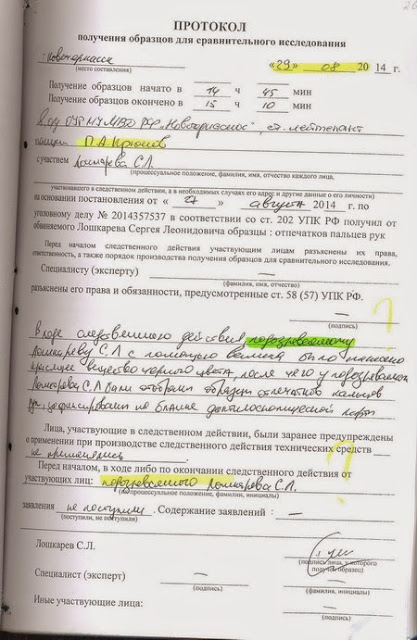 ПРОТОКОЛ
получения образцов для сравнительного исследования
Новочеркасск «29» 08 2014 г.
(место составления)
Получение образцов начато в 14 ч 45 мин
Получение образцов окончено в 15 ч 10 мин
МВД РФ "Новочеркасское", ст. лейтенант
полиции П.А.
участием Лошкарева С.Л.
(процессуальное положение, фамилия, имя, отчество каждого лица,
участвовавшего в следственном действии, а в необходимых случаях его адрес и другие данные о его личности)
на основании постановления от « 27 » августа 2014 г. по
уголовному делу № 2014357537 в соответствии со ст. 202 УПК РФ получил от
обвиняемого Лошкарева Сергея Леонидовича образцы : отпечатков пальцев рук
Перед началом следственного действия участвующим лицам разъяснены их права,
ответственность, а также порядок производства получения образцов для сравнительного исследования.
Специалисту (эксперту) —
(фамилия, имя, отчество)
разъяснены его права и обязанности, предусмотренные ст. 58 (57) УПК РФ.
?
(подпись)
В ходе следственного действия подозреваемому
Лошкареву С.Л с помощью валика было нанесено
красящее вещество черного цвета, после чего у подозреваемого
Лошкарева С.Л были отобраны образцы отпечатков пальцев
рук, зафиксированы на бланке дактилоскопической карты
Лица, участвующие в следственном действии, были заранее предупреждены
о применении при производстве следственного действия технических средств
не применялись
?
Перед началом, в ходе либо по окончании следственного действия от
участвующих лиц: подозреваемого Лошкарева С.Л.
(процессуальное положение, фамилии, инициалы)
заявления не поступили . Содержание заявлений: —
(поступили, не поступили)
Лошкарев С.Л.
(подпись лица, у которого
получен образец)
Специалист (эксперт) — —
(подпись) (фамилия, инициалы)
Иные участвующие лица: —
(подпись) (фамилия, инициалы)